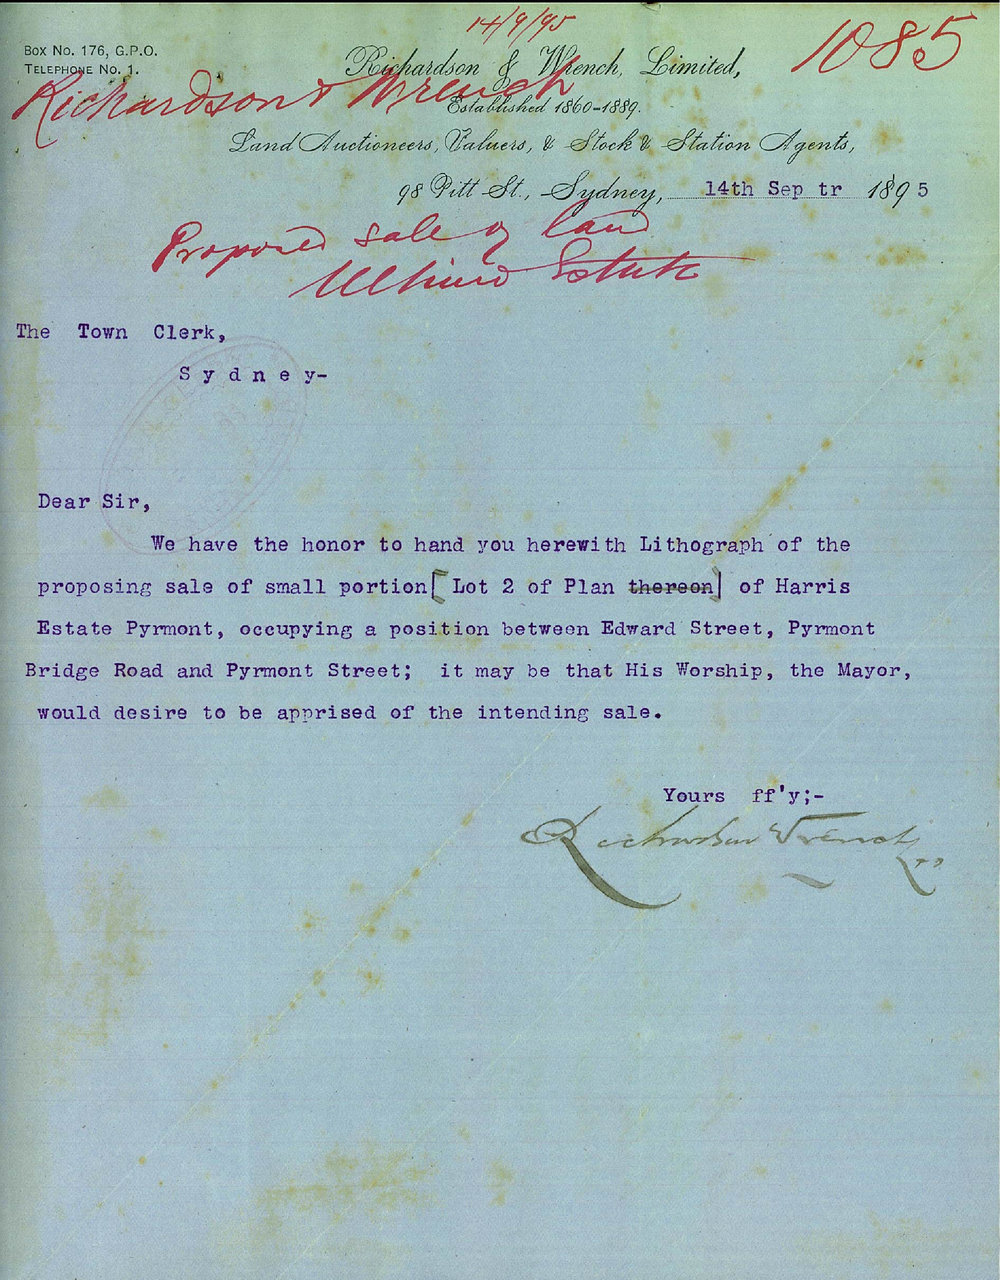 14/9/95
1085
Box No. 176, G.P.O.
Telephone No. 1.
Richardson & Wrench, Limited,
Richardson & Wrench
Established 1860-1889.
Land Auctioneers, Valuers, & Stock & Station Agents,
98 Pitt St., Sydney, 14th Sep tr 1895
Proposed sale of land
Ultimo Estate
The Town Clerk,
Sydney-
Dear Sir,
We have the honor to hand you herewith Lithograph of the
proposing sale of small portion [ Lot 2 of Plan thereon] of Harris
Estate Pyrmont, occupying a position between Edward Street, Pyrmont
Bridge Road and Pyrmont Street; it may be that His Worship, the Mayor,
would desire to be apprised of the intending sale.
Yours ff'y;-
Richardson Wrench